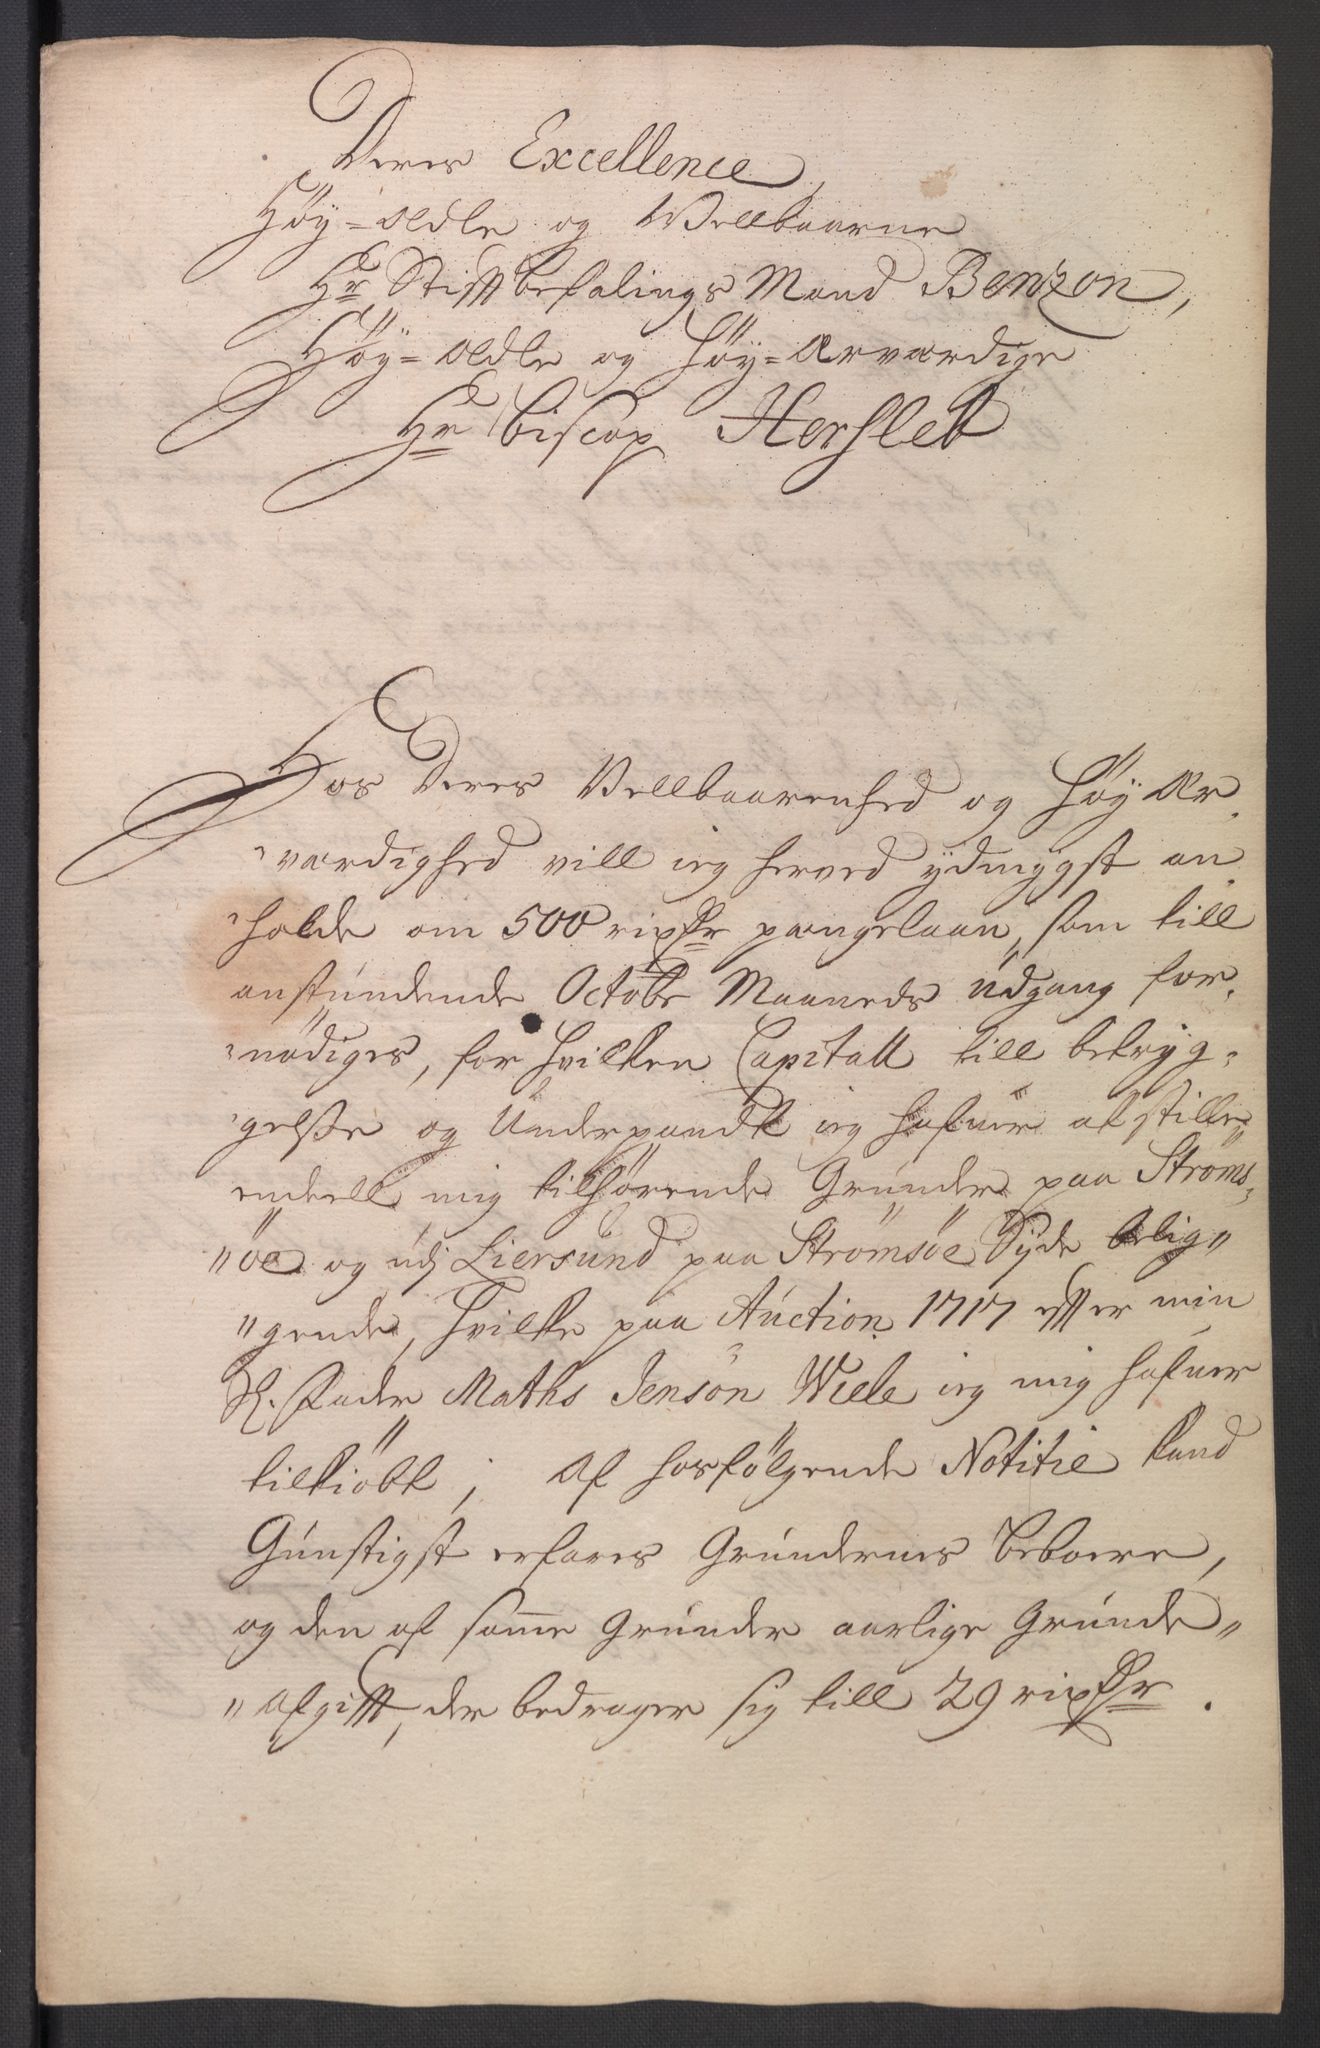 Deres Excellence,
Høÿ-ædle og Vellbaarne
Hr Stifftbefalings Mand Benzon,
Høÿ-ædle og Høÿ-ærværdige
Hr Biscop Hersleb
Hos Deres Vellbaarenhed og Høÿ Ær-
værdighed vill ieg herved ÿdmÿgst an
holde om 500 rixdr pængelaan, som till
anstundende Octobr Maaneds Udgang for-
nødiges, for hvilken Capitall till betrÿg-
gelse og Underpandt ieg hafuer at stille
endeell mig tilhørende Grunder paa Strøms
øe og udj Liersund paa Strømsøe Sÿde belig
gende, hvilke paa Auction 1717 effter min
Sl. Fader Maths Jensøn Wiele ieg mig hafuer
tilkiøbt; Af hosfølgende Notitie kand
Gunstigst erfares Grundernes Beboere,
og den af samme Grunder aarlige Grunde
Afgifft, der bedrager sig till 29 rixdr.